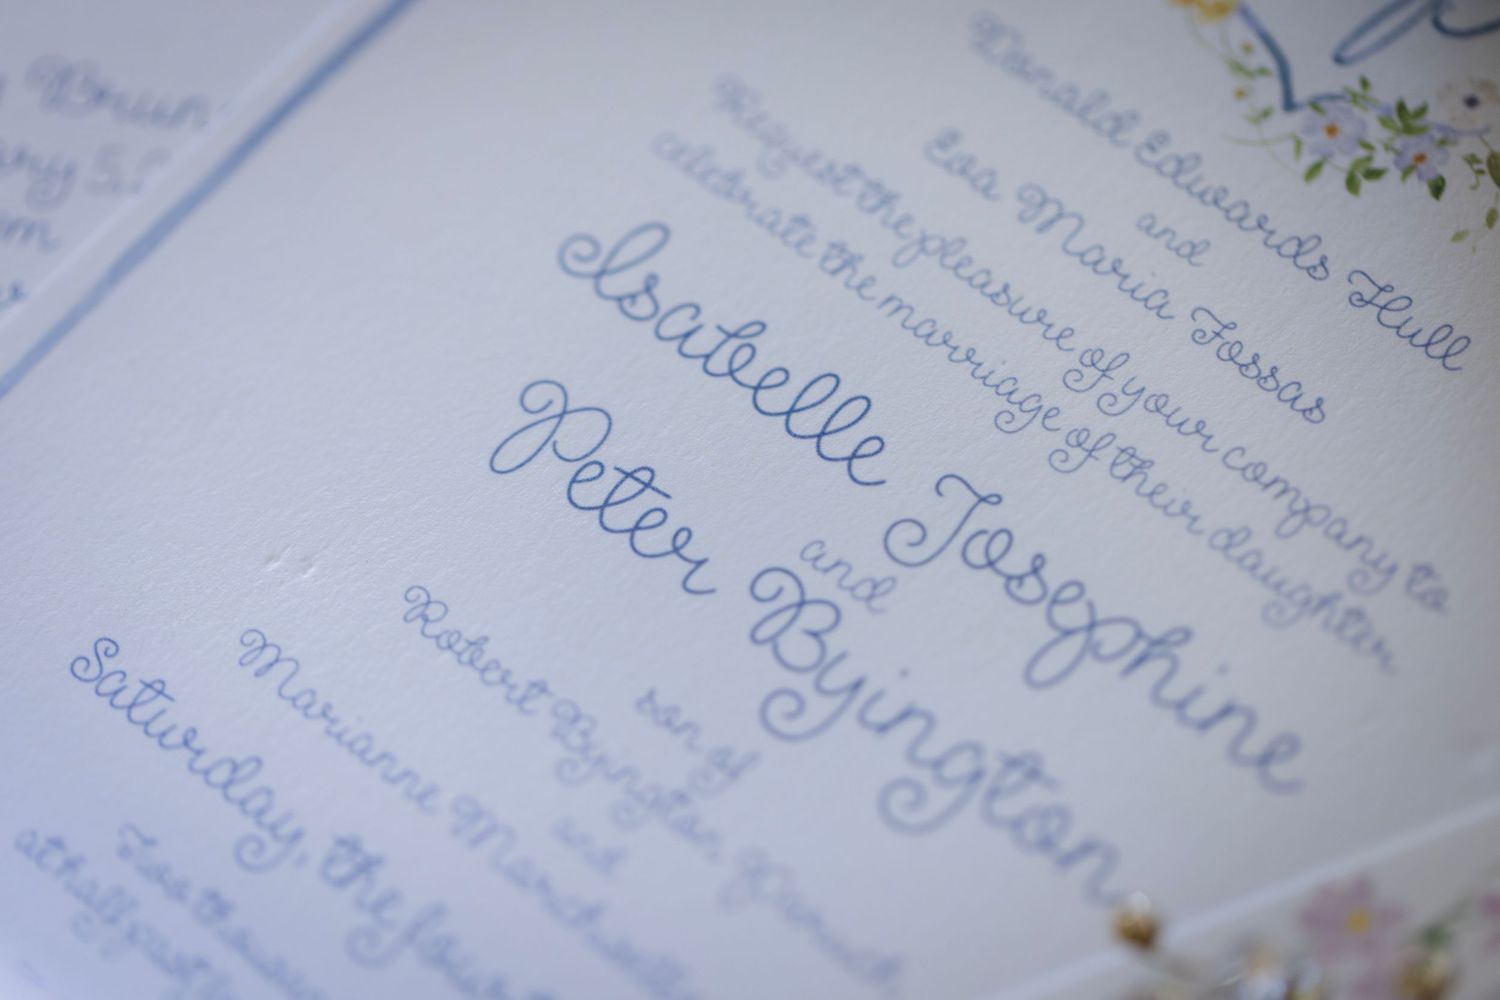 Donald Edwards Hull
and
Eva Maria Fossas
Request the pleasure of your company to
celebrate the marriage of their daughter
Isabelle Josephine
and
Peter Byington
son of
Robert Byington
and
Marianne
Saturday, the
Two
at half past
Brun
5